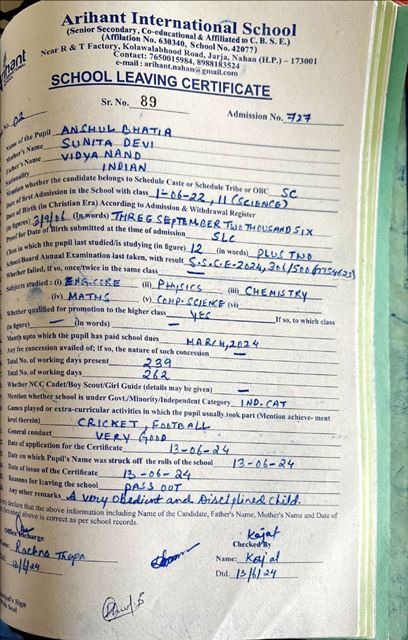 Arihant International School
(Senior Secondary, Co-educational & Affiliated to C. B. S. E.)
(Affilation No. 630340, School No. 42077)
Near R & T Factory, Kolawalabhood Road, Jarja, Nahan (H.P.) - 173001
Contact: 7650015984, 8988183524
e-mail : arihant.nahan@gmail.com
SCHOOL LEAVING CERTIFICATE
Sr. No. 89
Admission No. 727
No. 02
Name of the Pupil ANSHUL BHATIA
Mother's Name SUNITA DEVI
Father's Name VIDYA NAND
Nationality INDIAN
Mention whether the candidate belongs to Schedule Caste or Schedule Tribe or OBC SC
Date of first Admission in the School with class 1-06-22, 11 (SCIENCE)
Date of Birth (in Christian Era) According to Admission & Withdrawal Register
(in figures) 3/9/06 (In words) THREE SEPTEMBER TWO THOUSAND SIX
Proof for Date of Birth submitted at the time of admission SLC
Class in which the pupil last studied/is studying (in figure) 12 (in words) PLUS TWO
School/Board Annual Examination last taken, with result S.S.C.E-2024, 301/500
Whether failed, if so, once/twice in the same class —
Subjects studied : (i) ENG.CORE (ii) PHYSICS (iii) CHEMISTRY
(iv) MATHS (v) COMP. SCIENCE (vi)
Whether qualified for promotion to the higher class YES If so, to which class
(in figure) — (in words) —
Month upto which the pupil has paid school dues MARCH, 2024
Any fee concession availed of; if so, the nature of such concession —
Total No. of working days present 239
Total No. of working days 262
Whether NCC Cadet/Boy Scout/Girl Guide (details may be given) —
Mention whether school is under Govt./Minority/Independent Category IND. CAT
Games played or extra-curricular activities in which the pupil usually took part (Mention achieve- ment
level therein) CRICKET, FOOTBALL
General conduct VERY GOOD
Date of application for the Certificate 13-06-24
Date on which Pupil's Name was struck off the rolls of the school 13-06-24
Date of issue of the Certificate 13-06-24
Reasons for leaving the school PASS OUT
Any other remarks A very Obedient and Disciplined Child.
declare that the above information including Name of the Candidate, Father's Name, Mother's Name and Date of
furnished above is correct as per school records.
Office Incharge
Rachna Thapa
13/6/24
Kajal
Checked By
Name: Kajal
Dtd. 13/6/24
Principal's Sign
Seal